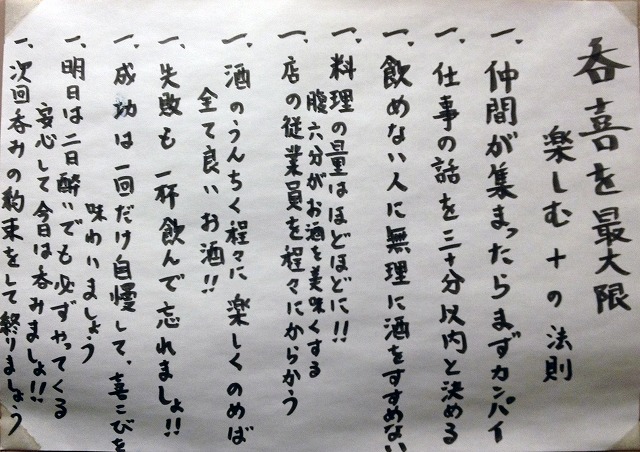 呑喜を最大限
楽しむ十の法則
一、仲間が集まったらまずカンパイ
一、仕事の話を三十分以内と決める
一、飲めない人に無理に酒をすすめない
一、料理の量はほどほどに!!
腹六分がお酒を美味くする
一、店の従業員を程々にからかう
一、酒のうんちく程々に楽しくのめば
全て良いお酒!!
一、失敗も一杯飲んで忘れましょ!!
一、成功は一回だけ自慢して、喜こびを
味わいましょう
一、明日は二日酔いでも必ずやってくる
安心して今日は呑みましょ!!
一、次回呑みの約束をして終りましょう